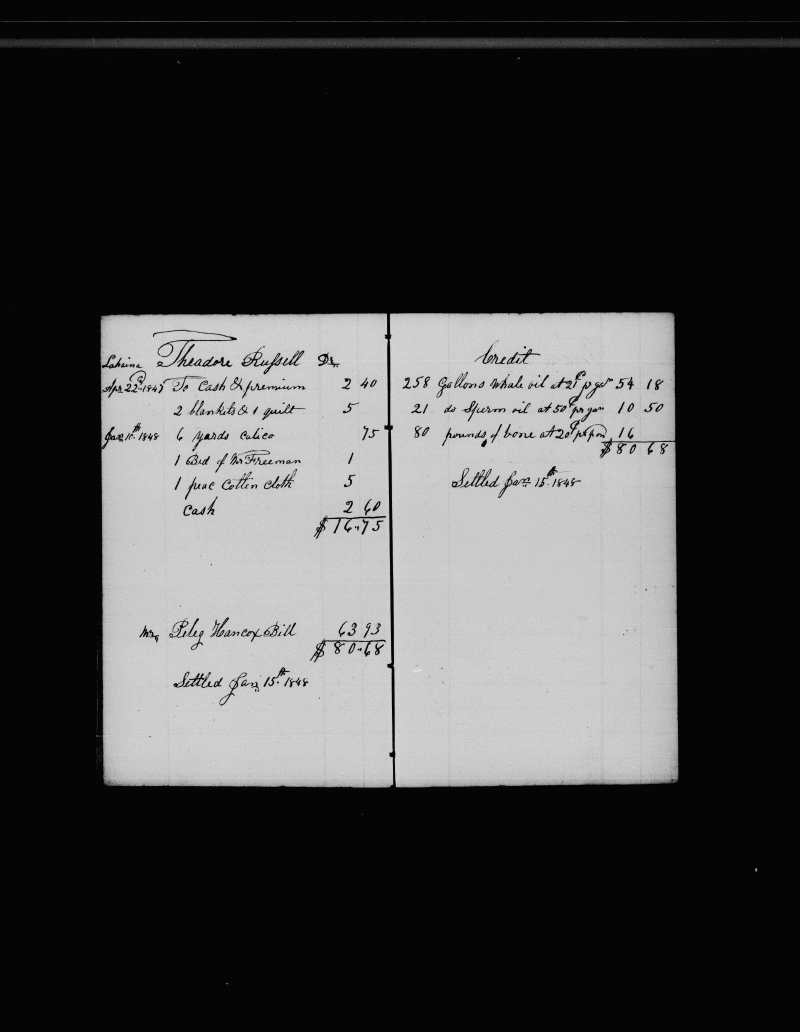 Theadore Russell Dr.
Lahaina
Apr 22d 1847 To Cash & premium 2 40
2 blankits & 1 quilt 5
Jan 1st 1848 6 yards calico 75
1 Bill of Mr Freeman 1
1 peac Cotten Cloth 5
Cash 2 60
$16.75
Peleg Hancox Bill 63 93
$80.68
Settled Jan 15th 1848
Credit
258 Gallons Whale oil at 21 c p gan 54 18
21 do Sperm oil at 50 c pr gan 10 50
80 pounds of bone at 20 c pr pon 16
$80 68
Settled Jan 15th 1848